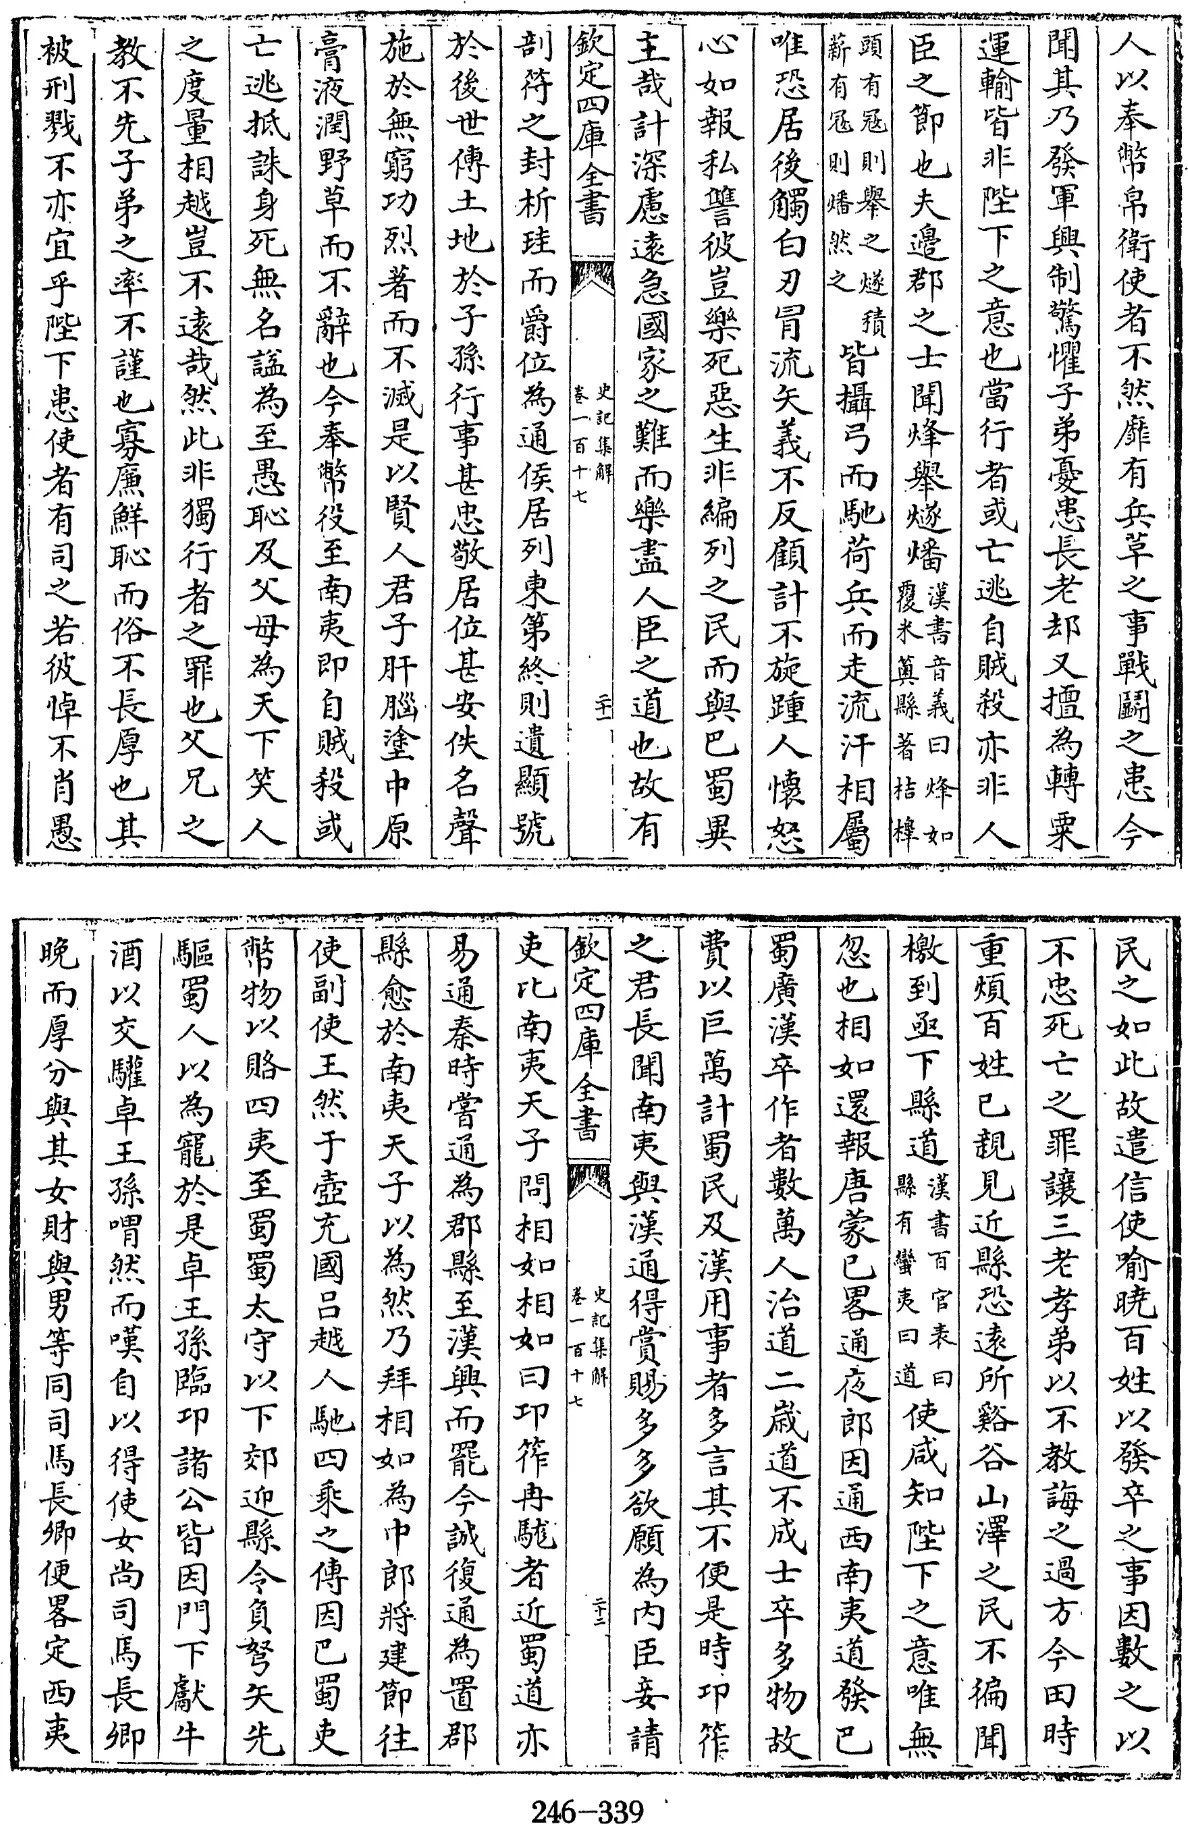 人以奉幣帛衛使者不然靡有兵革之事戰鬭之患今
聞其乃發軍興制驚懼子弟憂患長老却又擅為轉粟
運輸皆非陛下之意也當行者或亡逃自賊殺亦非人
臣之節也夫邉郡之士聞烽舉燧燔漢書音義曰烽如
覆米䉛縣著桔槹
頭有冦則舉之燧積
薪有冦則燔然之皆攝弓而馳荷兵而走流汗相屬
唯恐居後觸白刃冒流矢義不反顧計不旋踵人懷怒
心如報私讐彼豈樂死惡生非編列之民而與巴蜀異
主哉計深慮遠急國家之難而樂盡人臣之道也故有
欽定四庫全書
史記集解
卷一百十七
二十一
剖符之封析珪而爵位為通侯居列東第終則遺顯號
於後世傳土地於子孫行事甚忠敬居位甚安佚名聲
施於無窮功烈著而不滅是以賢人君子肝腦塗中原
膏液潤野草而不辭也今奉幣役至南夷即自賊殺或
亡逃抵誅身死無名諡為至愚恥及父母為天下笑人
之度量相越豈不遠哉然此非獨行者之罪也父兄之
教不先子弟之率不謹也寡廉鮮恥而俗不長厚也其
被刑戮不亦宜乎陛下患使者有司之若彼悼不肖愚
民之如此故遣信使喻曉百姓以發卒之事因數之以
不忠死亡之罪讓三老孝弟以不教誨之過方今田時
重煩百姓已親見近縣恐遠所谿谷山澤之民不徧聞
檄到亟下縣道漢書百官表曰
縣有蠻夷曰道使咸知陛下之意唯無
忽也相如還報唐蒙已畧通夜郎因通西南夷道發巴
蜀廣漢卒作者數萬人治道二嵗道不成士卒多物故
費以巨萬計蜀民及漢用事者多言其不便是時卭筰
之君長聞南夷與漢通得賞賜多多欲願為内臣妾請
欽定四庫全書
史記集解
卷一百十七
二十二
吏比南夷天子問相如相如曰卭筰冉駹者近蜀道亦
易通秦時嘗通為郡縣至漢興而罷今誠復通為置郡
縣愈於南夷天子以為然乃拜相如為中郎將建節往
使副使王然于壺充國吕越人馳四乘之傳因巴蜀吏
幣物以賂四夷至蜀蜀太守以下郊迎縣令負弩矢先
驅蜀人以為寵於是卓王孫臨卭諸公皆因門下獻牛
酒以交驩卓王孫喟然而嘆自以得使女尚司馬長卿
晚而厚分與其女財與男等同司馬長卿便畧定西夷
246-339